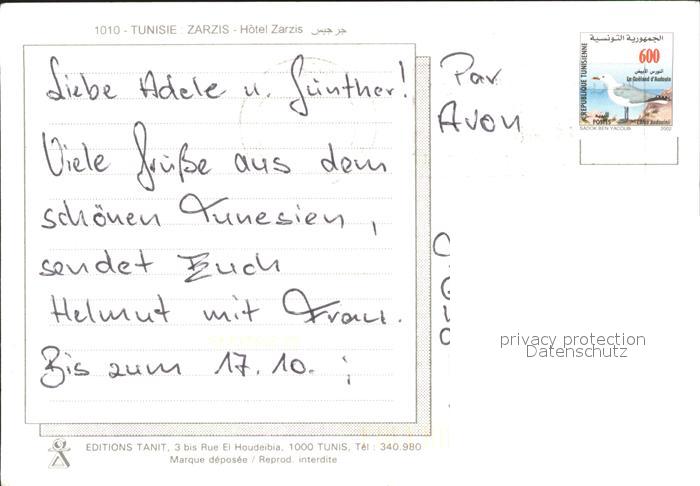 1010 - TUNISIE : ZARZIS - Hôtel Zarzis جرجيس
Liebe Adele u. Günther!
Viele Grüße aus dem
schönen Tunesien,
sendet Euch
Helmut mit Frau.
Bis zum 17.10. !
Par
Avon
الجمهورية التونسية
REPUBLIQUE TUNISIENNE
600
النورس الأبيض
Le Goéland d'Audouin
البريد
POSTES
Larus Audouinii
SADOK BEN YACOUB 2002
privacy protection
Datenschutz
EDITIONS TANIT, 3 bis Rue El Houdeibia, 1000 TUNIS, Tél : 340.980
Marque déposée / Reprod. interdite